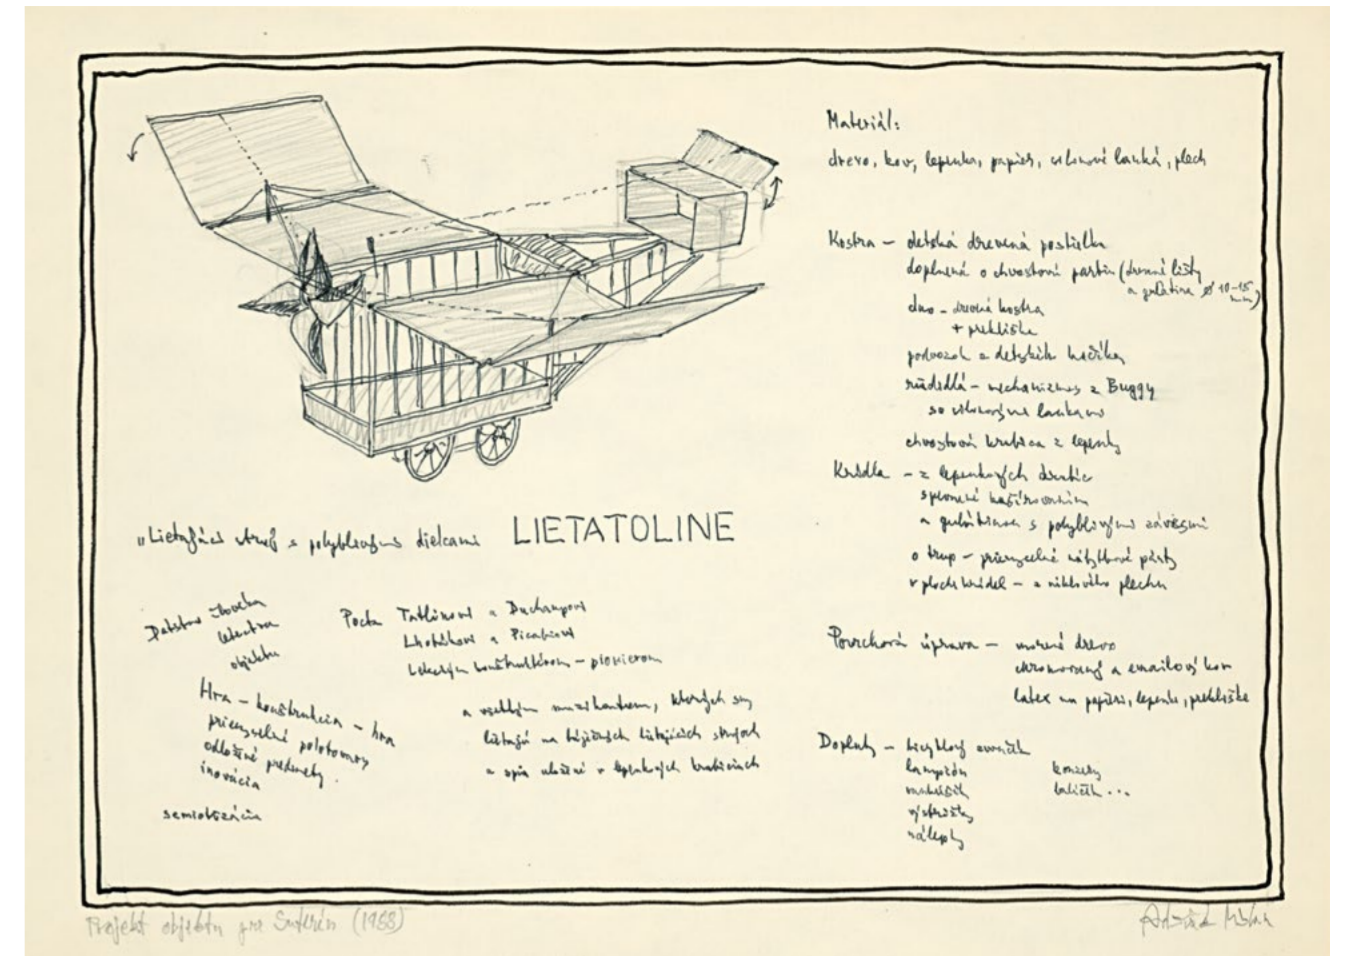 Materiál:
drevo, kov, lepenka, papier, silonové lanká, plech
Kostra – detská drevená postieľka
doplnená o chvostovú partiu (drevené lišty
a guľatina ⌀ 10-15
mm)
dno – drevená kostra
+ prekliška
podvozok z detského kočíka
riadidlá – mechanizmus z Buggy
so silonovými lankami
chvostová krabica z lepenky
Krídla – z lepenkových
spevnené kašírovaním
a guľatinou s pohyblivými závesmi
o trup – priemyselné nábytkové pánty
v ploche krídel – z niklového plechu
Povrchová úprava – morené drevo
chromovaný a emailový kov
latex na papieri, lepenke, prekližke
Doplnky – bicyklový zvonček
lampión
vystrižky
nálepky
balíček ...
„Lietajúci stroj s pohyblivými dielcami LIETATOLINE
Detstvo človeka
letectva
objektu
Hra – konštrukcia – hra
priemyselné polotovary
odložené predmety.
inovácia
semiotizácia
Pocta Tatlinovi a Duchampovi
a Picabiovi
leteckým konštruktérom – pionierom
a všetkým muzikantom, ktorých sny
lietajú na báječných lietajúcich strojoch
a spia uložené v lepenkových krabiciach
Projekt objektu pre Suterén (1988)